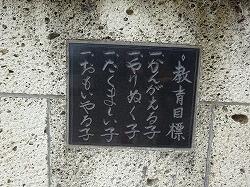 教育目標
一かんがえる子
一やりぬく子
一たくましい子
一おもいやる子